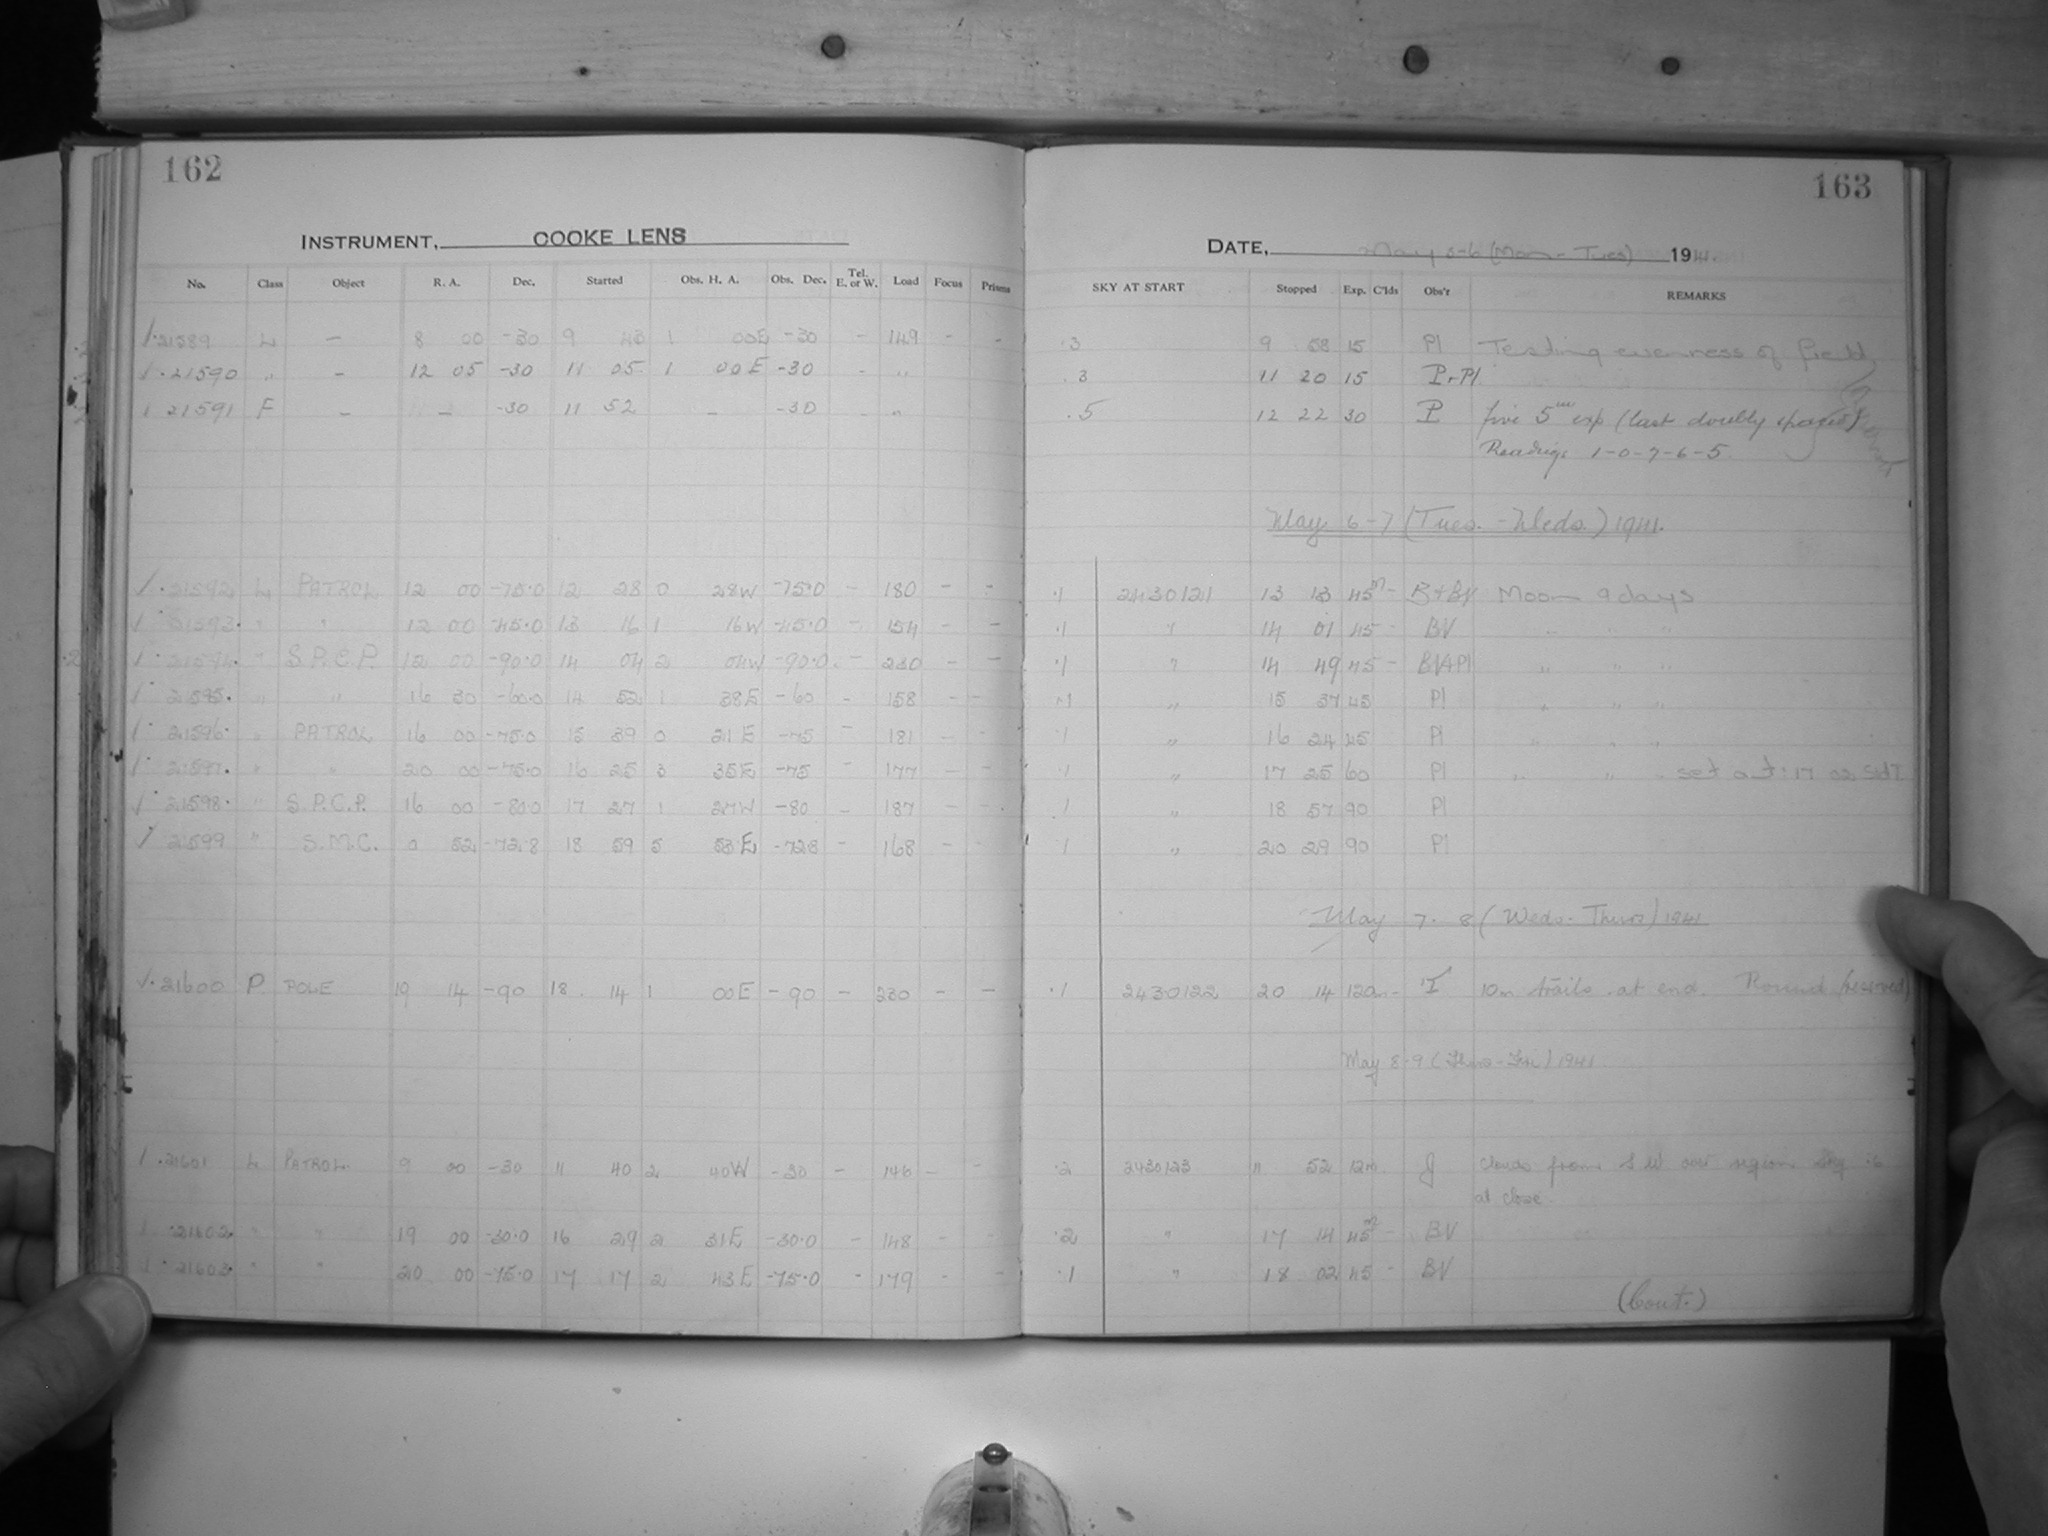 162
163
INSTRUMENT, COOKE LENS
DATE, May 5-6 (Mon - Tues) 1941.
No. Class Object R. A. Dec. Started Obs. H. A. Obs. Dec. Tel. E. or W. Load Focus Prisms SKY AT START Stopped Exp. C'lds Obs'r REMARKS
21589 L — 8 00 -30 9 43 1 00E -30 - 149 - - .3 9 58 15 Pl Testing evenness of field
21590 " - 12 05 -30 11 05 1 00E -30 - " .3 11 20 15 P+Pl
21591 F - - -30 11 52 - -30 - " .5 12 22 30 P five 5m exp (last doubly spaced)
Readings 1-0-7-6-5
May 6-7 (Tues. - Weds.) 1941.
21592 L PATROL 12 00 -75.0 12 28 0 28W -75.0 - 180 - - .1 2430121 13 13 45m - B+BV Moon 9 days
21593. " " 12 00 -45.0 13 16 1 16W -45.0 - 154 - - .1 " 14 01 45 - BV " " "
21594. " S.P.C.P. 12 00 -90.0 14 04 2 04W -90.0 - 230 - - .1 " 14 49 45 - BV+Pl " " "
21595. " " 16 30 -60.0 14 52 1 38E -60 - 158 - - .1 " 15 37 45 Pl " " "
21596. " PATROL 16 00 -75.0 15 39 0 21E -75 - 181 - - .1 " 16 24 45 Pl " " "
21597. " " 20 00 -75.0 16 25 3 35E -75 - 177 - - .1 " 17 25 60 Pl " " " set at: 17 02 Sid T.
21598. " S.P.C.P. 16 00 -80.0 17 27 1 27W -80 - 187 - - .1 " 18 57 90 Pl
21599 " S.M.C. 0 52 -72.8 18 59 5 53E -72.8 - 168 - - .1 " 20 29 90 Pl
May 7. 8 (Weds. - Thurs) 1941
21600 P POLE 19 14 -90 18 14 1 00E -90 - 230 - - .1 2430122 20 14 120m - I 10m trails at end. Round (reserved)
May 8-9 (Thurs - Fri) 1941
21601 L PATROL. 9 00 -30 11 40 2 40W -30 - 146 - - .2 2430123 11 52 12m J clouds from S W over region Sky
at close.
21602. " " 19 00 -30.0 16 29 2 31E -30.0 - 148 - - .2 " 17 14 45m - BV
21603. " " 20 00 -75.0 17 17 2 43E -75.0 - 179 - - .1 " 18 02 45 - BV
(Cont.)